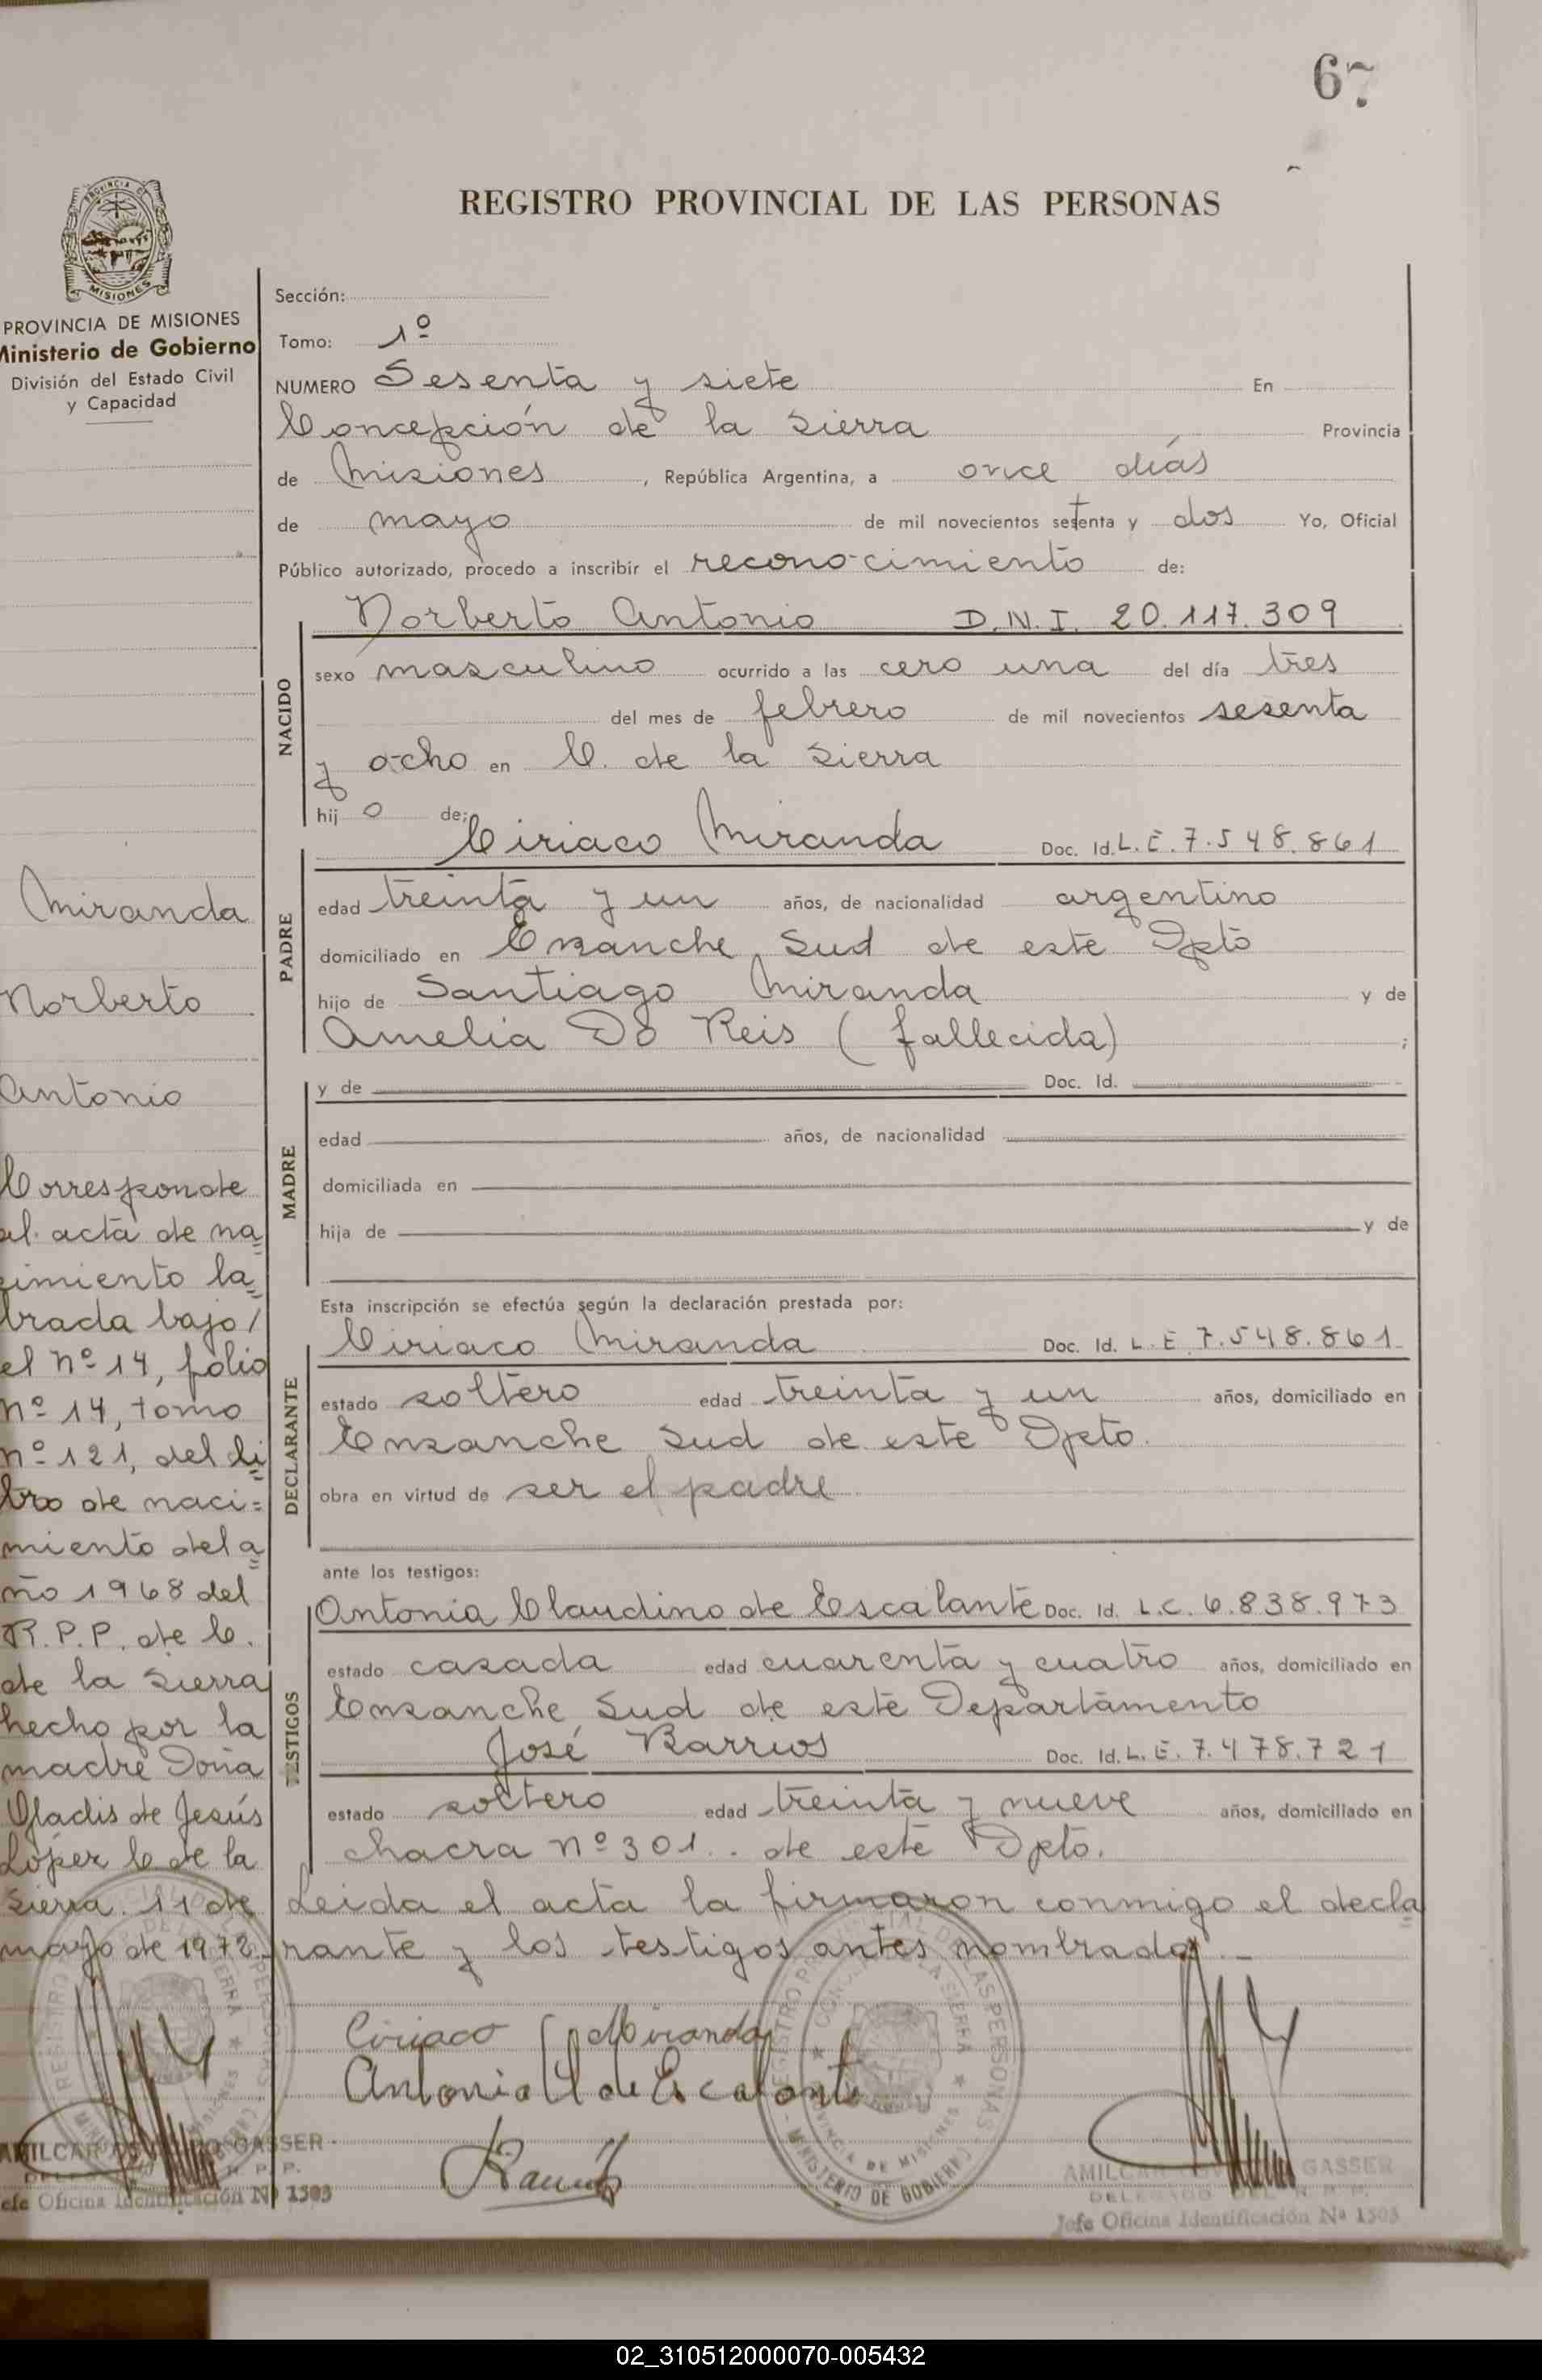 67
REGISTRO PROVINCIAL DE LAS PERSONAS
PROVINCIA DE MISIONES
Ministerio de Gobierno
División del Estado Civil
y Capacidad
Miranda
Norberto
Antonio
Corresponde
al acta de na=
cimiento la=
brada bajo/
el nº 14, folio
nº 14, tomo
nº 121, del li=
bro de naci=
miento del a=
ño 1968 del
R.P.P. de C.
de la Sierra
hecho por la
madre Doña
Gladis de Jesús
López C de la
Sierra. 11 de
mayo de 1972.
Sección:
Tomo: 1º
NUMERO Sesenta y siete En
Concepción de la Sierra Provincia
de Misiones, República Argentina, a once días
de mayo de mil novecientos setenta y dos Yo, Oficial
Público autorizado, procedo a inscribir el reconocimiento de:
NACIDO
Norberto Antonio D.N.I. 20.117.309
sexo masculino ocurrido a las cero una del día tres
del mes de febrero de mil novecientos sesenta
y ocho en C. de la Sierra
hijo de:
PADRE
Ciriaco Miranda Doc. Id. L.E. 7.548.861
edad treinta y un años, de nacionalidad argentino
domiciliado en Ensanche Sud de este Dpto
hijo de Santiago Miranda y de
Amelia Do Reis (fallecida) ;
MADRE
y de Doc. Id.
edad años, de nacionalidad
domiciliada en
hija de y de
Esta inscripción se efectúa según la declaración prestada por:
DECLARANTE
Ciriaco Miranda Doc. Id. L.E 7.548.861
estado soltero edad treinta y un años, domiciliado en
Ensanche Sud de este Dpto.
obra en virtud de ser el padre
ante los testigos:
TESTIGOS
Antonia Claudino de Escalante Doc. Id. L.C. 6.838.973
estado casada edad cuarenta y cuatro años, domiciliado en
Ensanche Sud de este Departamento
José Barrios Doc. Id. L.E. 7.478.721
estado soltero edad treinta y nueve años, domiciliado en
chacra nº 301.. de este Dpto.
Leida el acta la firmaron conmigo el decla
rante y los testigos antes nombrados.-
Ciriaco Miranda
Antonia Cl de Escalante
AMILCAR GASSER
R. P. P.
Jefe Oficina Identificación Nº 1503
AMILCAR GASSER
DELEGADO DEL R. P. P.
Jefe Oficina Identificación Nº 1503
02_310512000070-005432